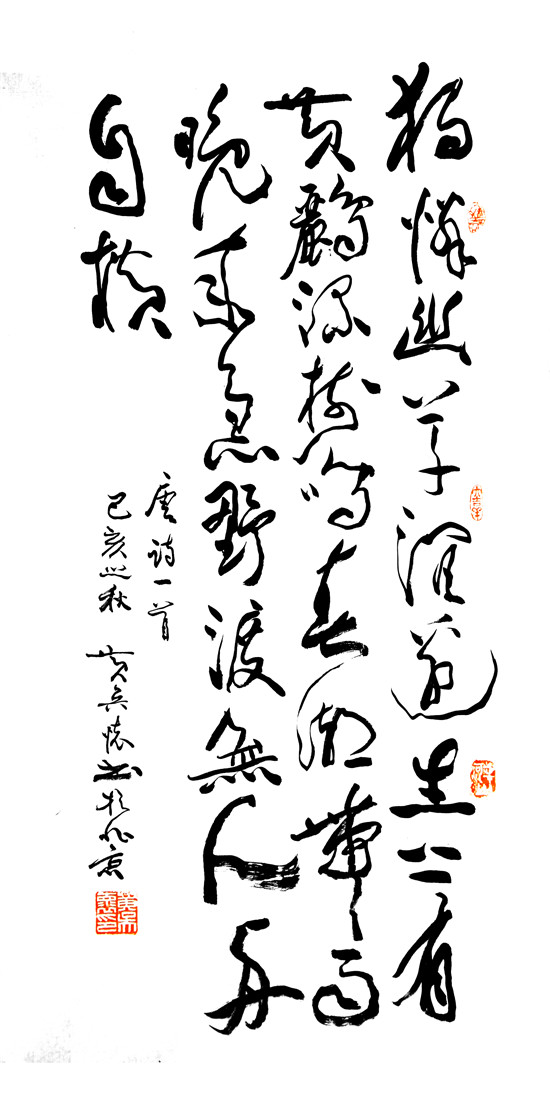 獨憐幽草澗邊生上有
黄鸝深樹鳴春潮帶雨
晚来急野渡無人舟
自橫
唐詩一首
己亥之秋 黄兵懷書於北京